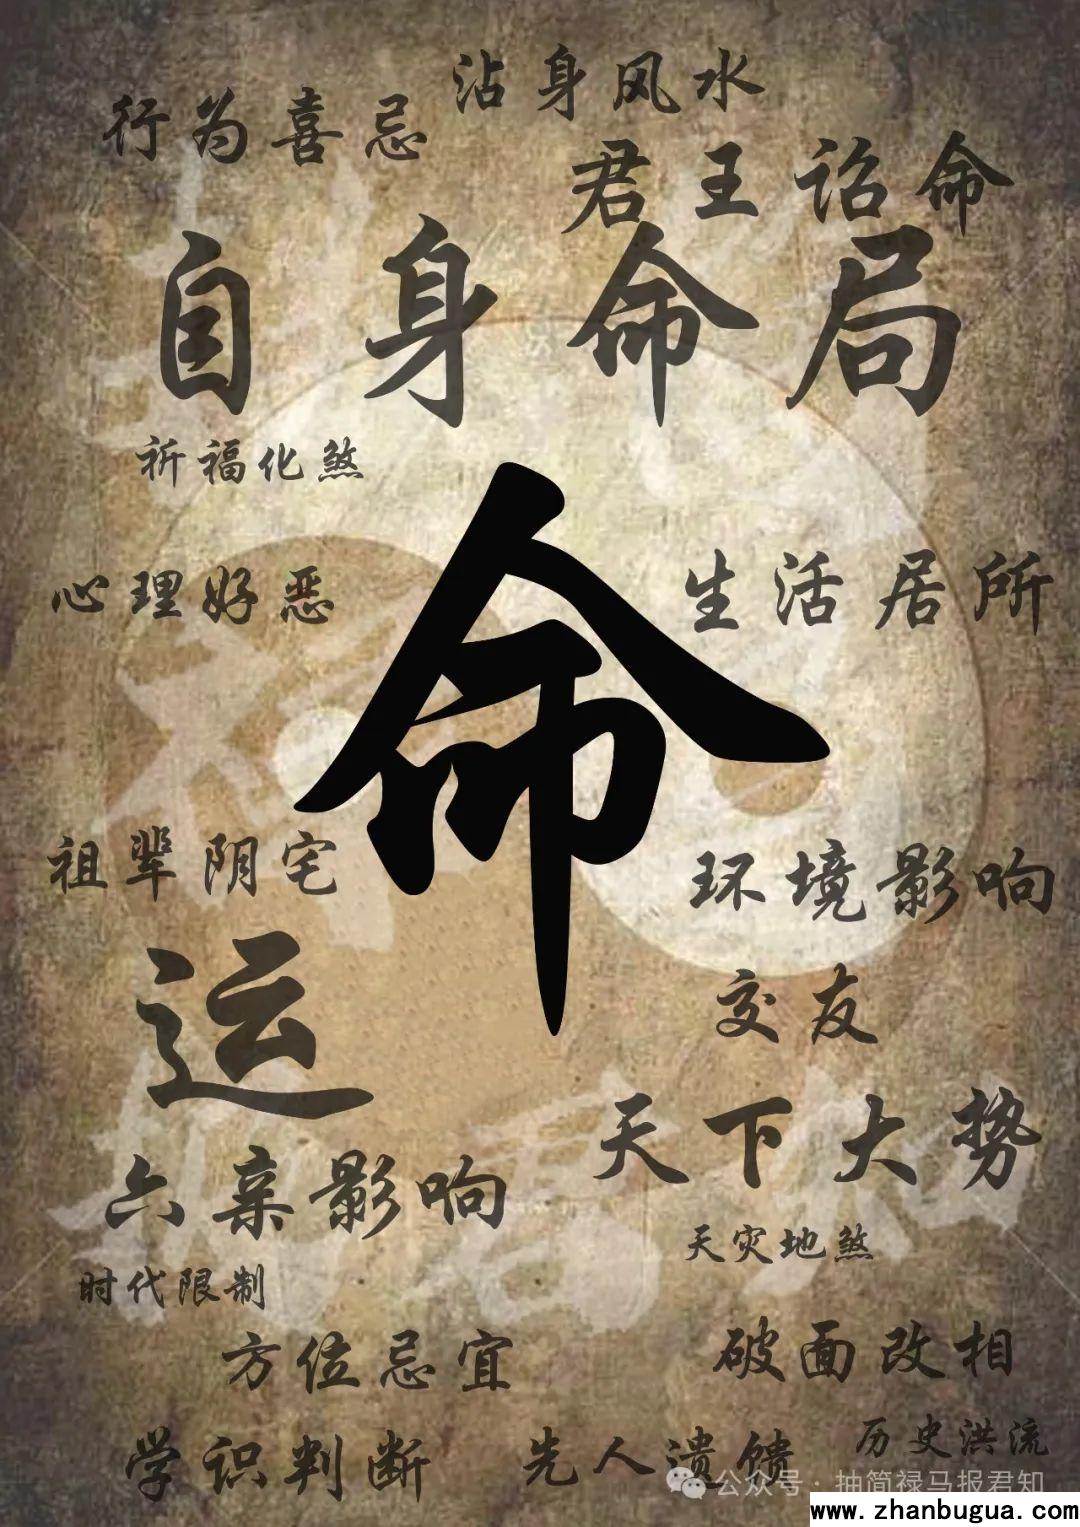 沾身风水
行为喜忌
君王诏命
自身命局
祈福化煞
命
心理好恶
生活居所
祖辈阴宅
环境影响
运
交友
天下大势
六亲影响
天灾地煞
时代限制
方位忌宜
破面改相
学识判断
先人遗馈
历史洪流
公众号 · 抽简禄马报君知
www.zhanbugua.com